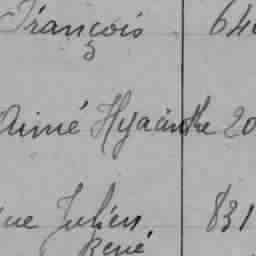 François 64
Aimé Hyacinthe 20
ue Julien 831
René